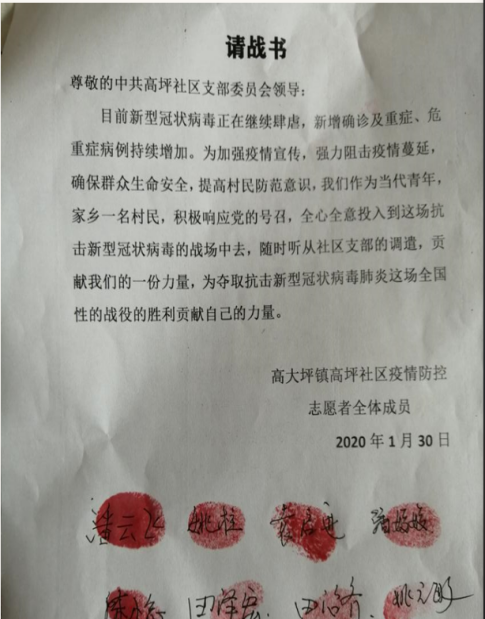 请战书
尊敬的中共高坪社区支部委员会领导：
目前新型冠状病毒正在继续肆虐，新增确诊及重症、危
重症病例持续增加。为加强疫情宣传，强力阻击疫情蔓延，
确保群众生命安全，提高村民防范意识，我们作为当代青年，
家乡一名村民，积极响应党的号召，全心全意投入到这场抗
击新型冠状病毒的战场中去，随时听从社区支部的调遣，贡
献我们的一份力量，为夺取抗击新型冠状病毒肺炎这场全国
性的战役的胜利贡献自己的力量。
高大坪镇高坪社区疫情防控
志愿者全体成员
2020 年 1 月 30 日
姚柱